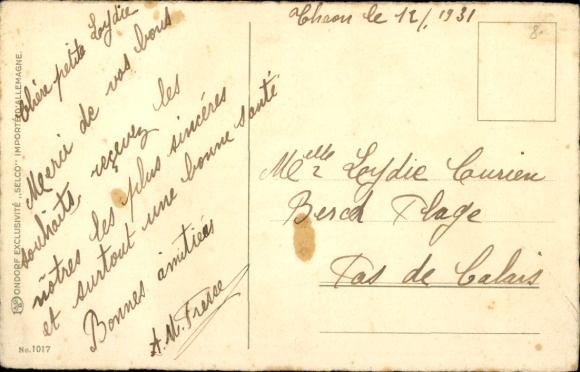 Thaon le 12/1 1931
Chère petite Lydie
Merci de vos bons
souhaits, reçevez les
nôtres les plus sincères
et surtout une bonne santé
Bonnes amitiées
A.M. Fresce
Melle Lydie Curien
Berck Plage
Pas de Calais
ONDORF EXCLUSIVITÉ „SELCO" IMPORTÉ D'ALLEMAGNE.
No. 1017
8-